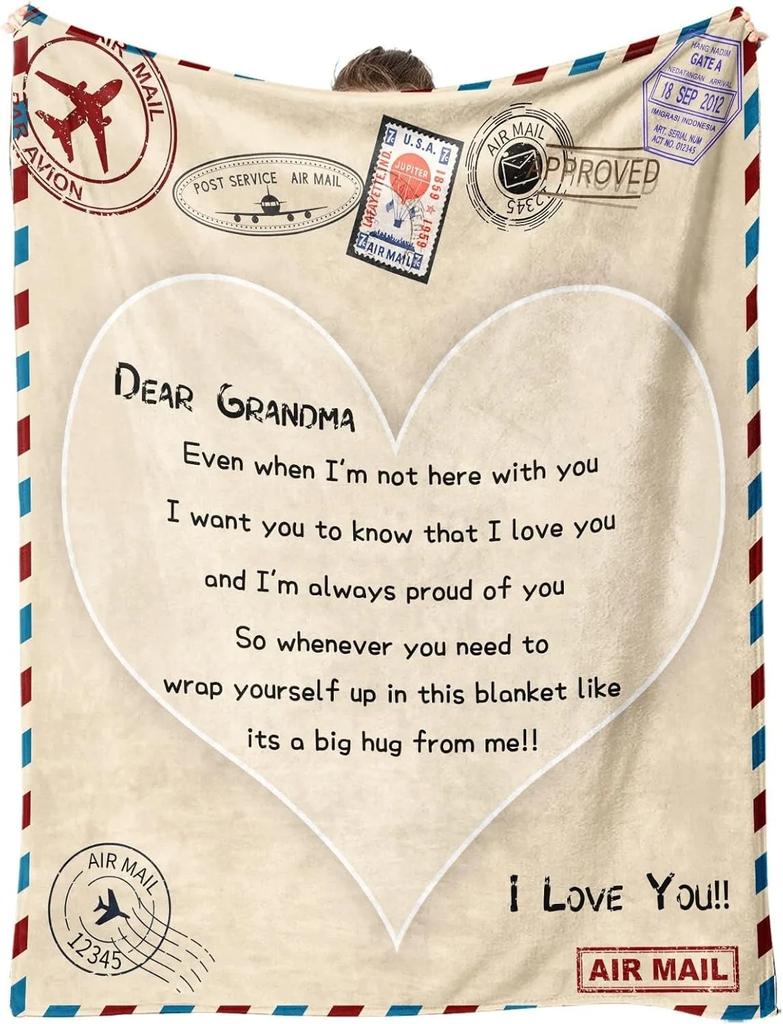 AIR MAIL
PAR AVION
POST SERVICE AIR MAIL
U.S.A.
JUPITER
LAFAYETTE, IND.
1859 ★ 1959
7¢
7¢
AIR MAIL
AIR MAIL
12345
APPROVED
HANG NADIM
GATE A
KEDATANGAN ARRIVAL
18 SEP 2012
IMIGRASI INDONESIA
ART. SERIAL NUM
ACT NO. 012345
DEAR GRANDMA
Even when I'm not here with you
I want you to know that I love you
and I'm always proud of you
So whenever you need to
wrap yourself up in this blanket like
its a big hug from me!!
I LOVE YOU!!
AIR MAIL
12345
AIR MAIL